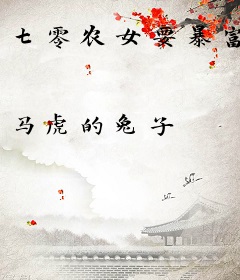 七零农女要暴富
马虎的兔子